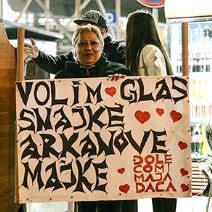 VOLIM GLAS
SNAJKE
ARKANOVE
MAJKE
DOLE
COMI
MAJA
DACA